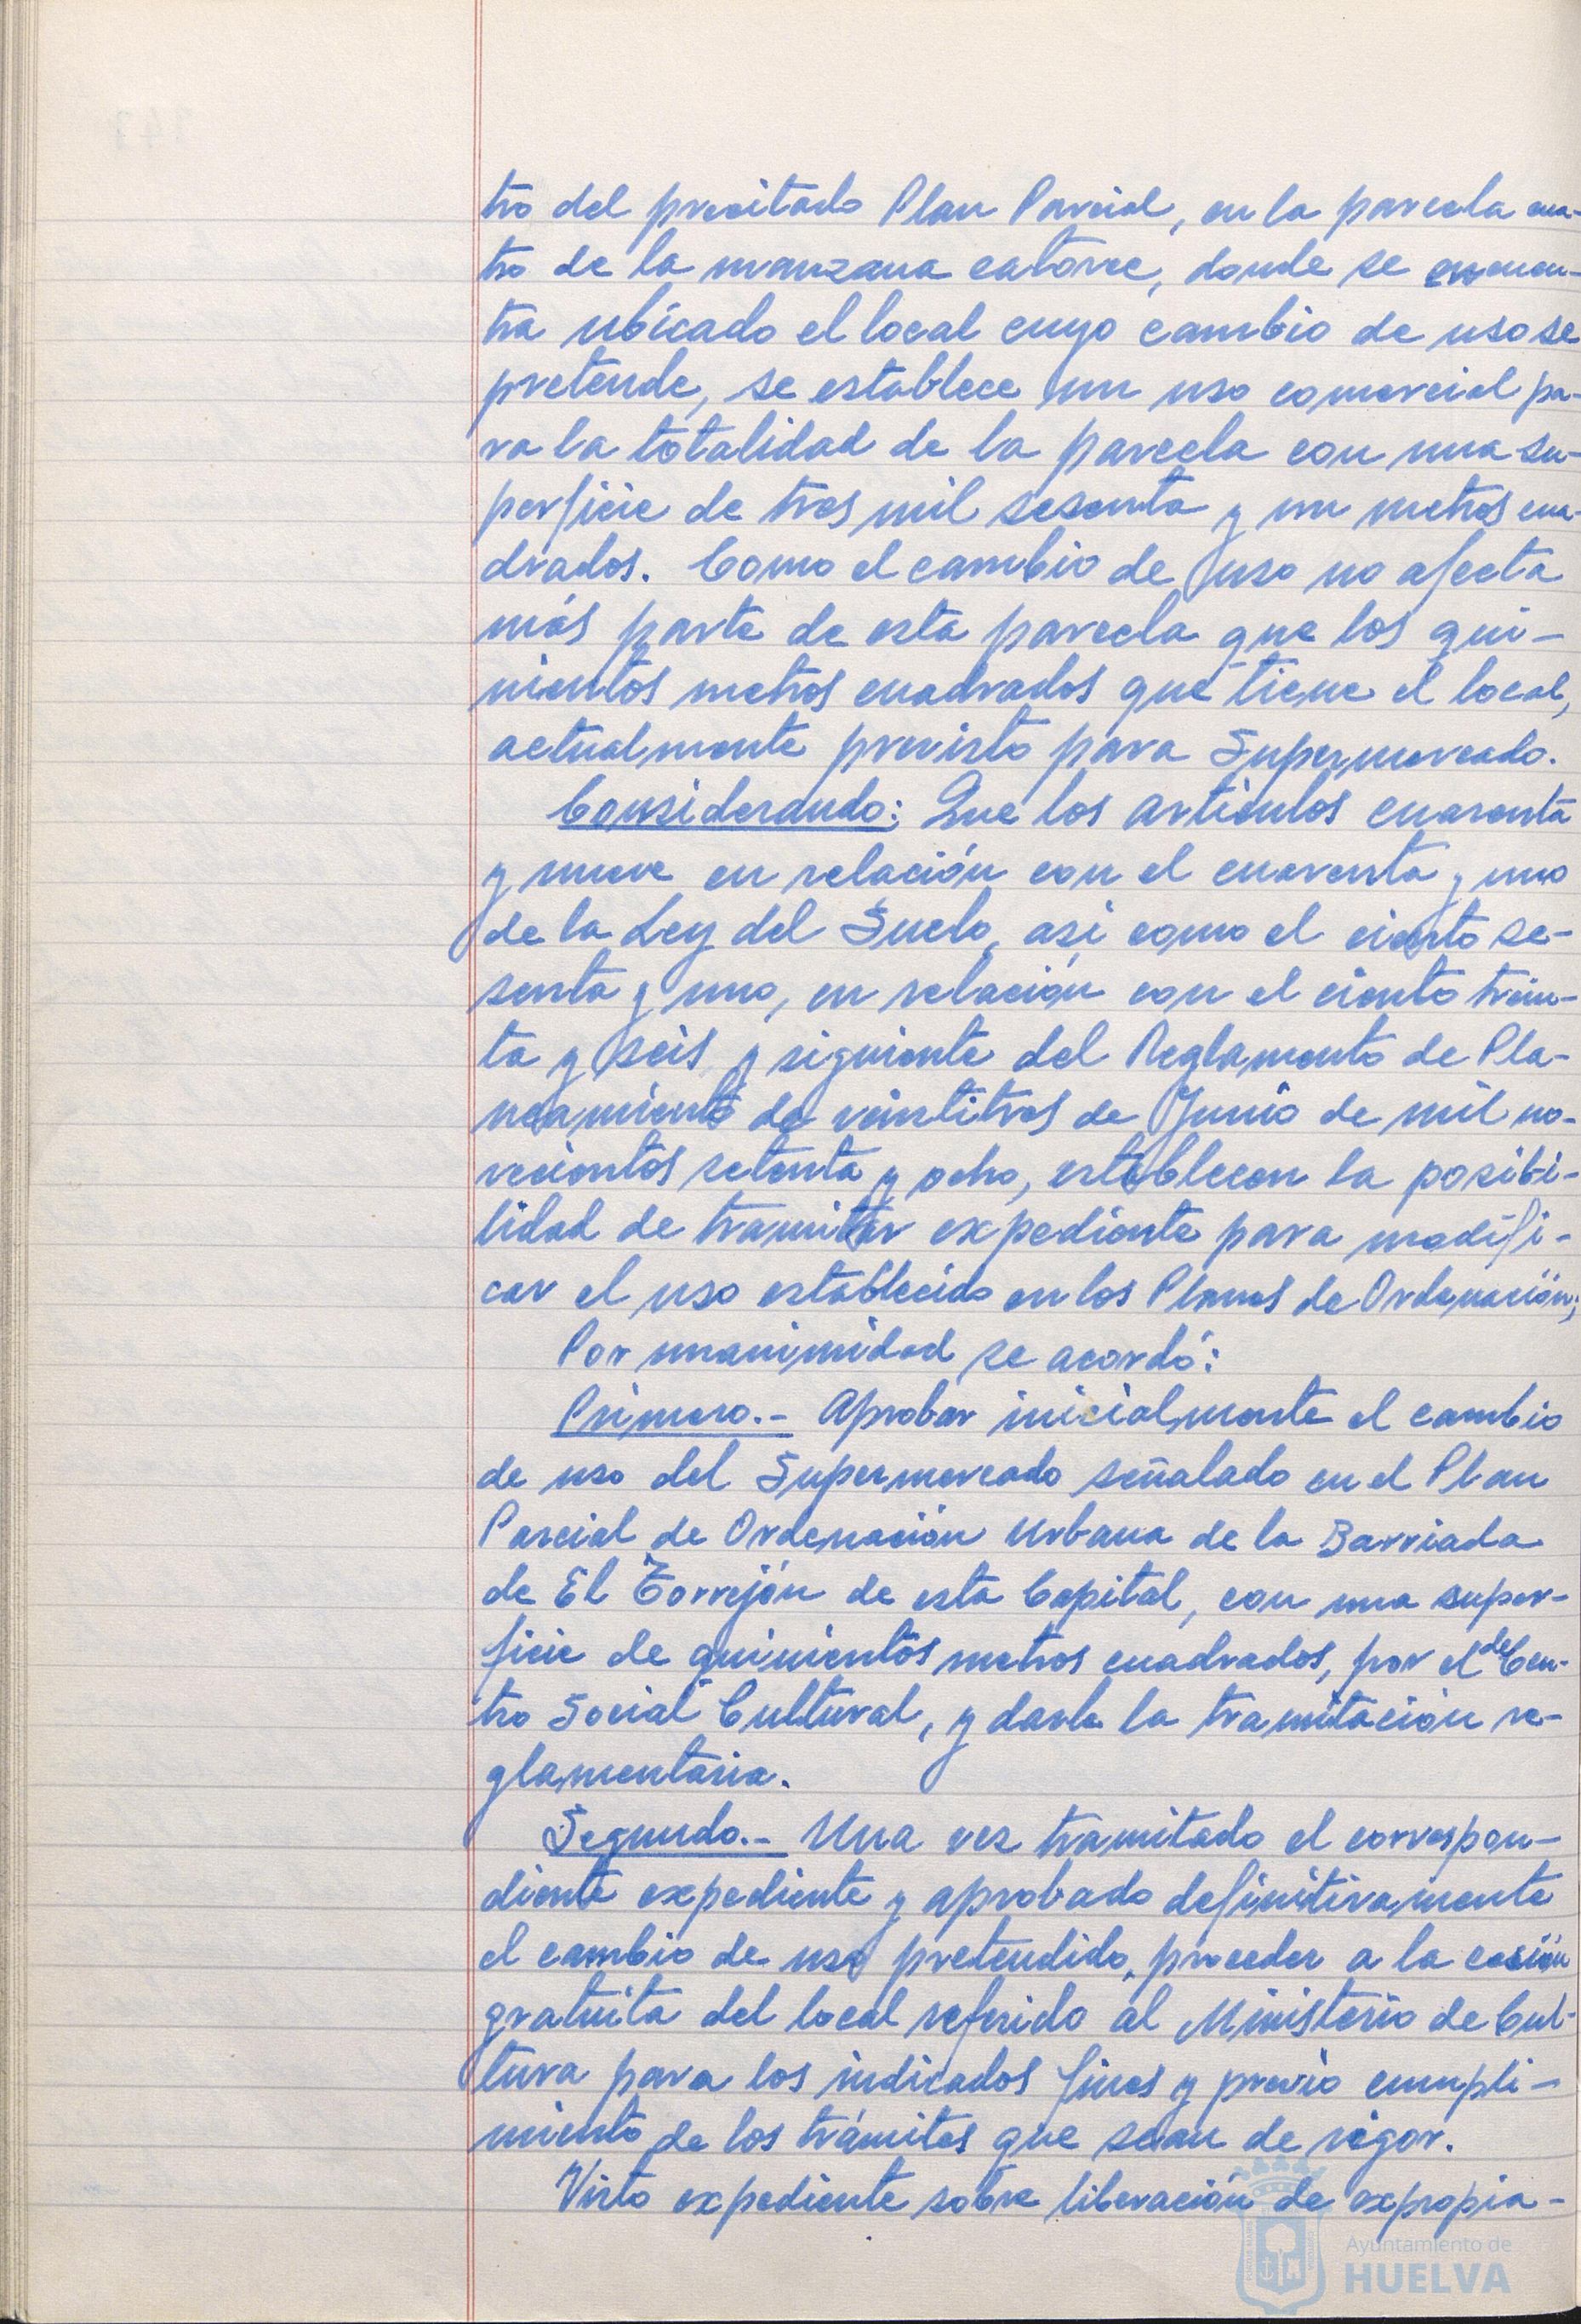 tro del precitado Plan Parcial, en la parcela cua-
tro de la manzana catorce, donde se encuen-
tra ubicado el local cuyo cambio de uso se
pretende, se establece un uso comercial pa-
ra la totalidad de la parcela con una su-
perficie de tres mil sesenta y un metros cua-
drados. Como el cambio de uso no afecta
más parte de esta parcela que los qui-
nientos metros cuadrados que tiene el local,
actualmente previsto para Supermercado.
Considerando: Que los artículos cuarenta
y nueve en relación con el cuarenta y uno
de la Ley del Suelo, así como el ciento se-
senta y uno, en relación con el ciento trein-
ta y seis y siguiente del Reglamento de Pla-
neamiento de veintitres de Junio de mil no-
vecientos setenta y ocho, establecen la posibi-
lidad de tramitar expediente para modifi-
car el uso establecido en los Planes de Ordenación;
Por unanimidad se acordó:
Primero.- Aprobar inicialmente el cambio
de uso del Supermercado señalado en el Plan
Parcial de Ordenación Urbana de la Barriada
de El Torrejón de esta Capital, con una super-
ficie de quinientos metros cuadrados, por el de Cen-
tro Social Cultural, y darle la tramitación re-
glamentaria.
Segundo.- Una vez tramitado el correspon-
diente expediente y aprobado definitivamente
el cambio de uso pretendido, proceder a la cesión
gratuita del local referido al Ministerio de Cul-
tura para los indicados fines y previo cumpli-
miento de los trámites que sean de rigor.
Visto expediente sobre liberación de expropia-
Ayuntamiento de
HUELVA